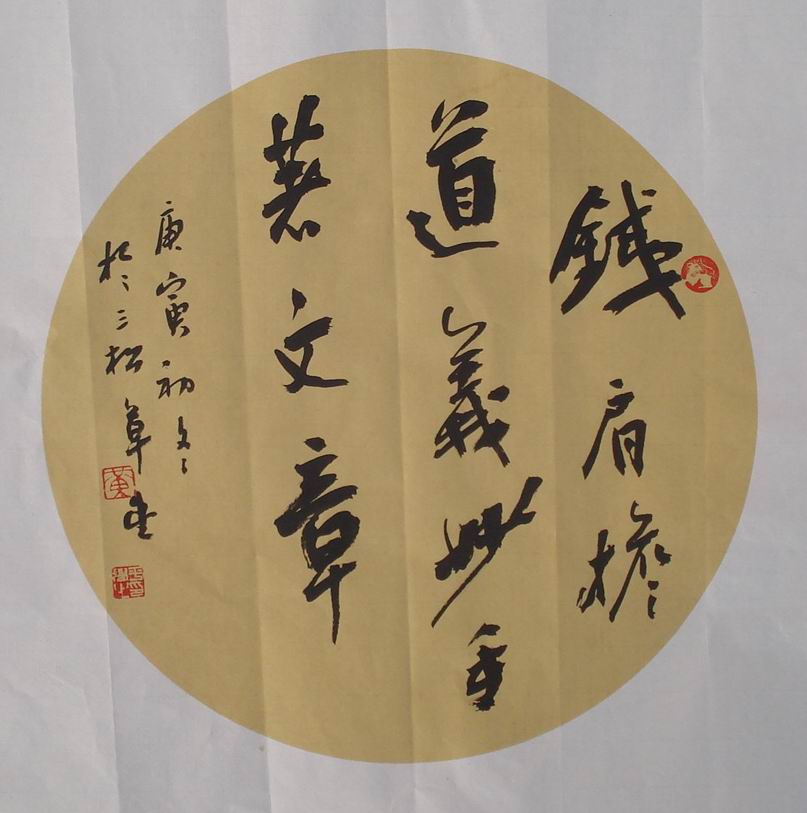 鐵肩擔
道義妙手
著文章
庚寅初冬
於三松草堂